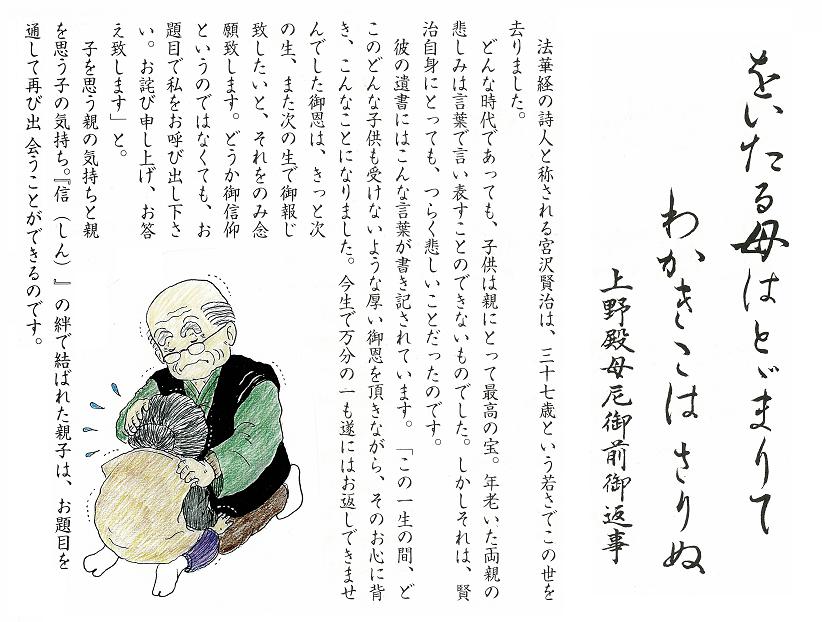 をいたる母はとゞまりて
わかきこはさりぬ
上野殿母尼御前御返事
法華経の詩人と称される宮沢賢治は、三十七歳という若さでこの世を
去りました。
どんな時代であっても、子供は親にとって最高の宝。年老いた両親の
悲しみは言葉で言い表すことのできないものでした。しかしそれは、賢
治自身にとっても、つらく悲しいことだったのです。
彼の遺書にはこんな言葉が書き記されています。「この一生の間、ど
このどんな子供も受けないような厚い御恩を頂きながら、そのお心に背
き、こんなことになりました。今生で万分の一も遂にはお返しできませ
んでした御恩は、きっと次
の生、また次の生で御報じ
致したいと、それをのみ念
願致します。どうか御信仰
というのではなくても、お
題目で私をお呼び出し下さ
い。お詫び申し上げ、お答
え致します」と。
子を思う親の気持ちと親
を思う子の気持ち。『信（しん）』の絆で結ばれた親子は、お題目を
通して再び出会うことができるのです。